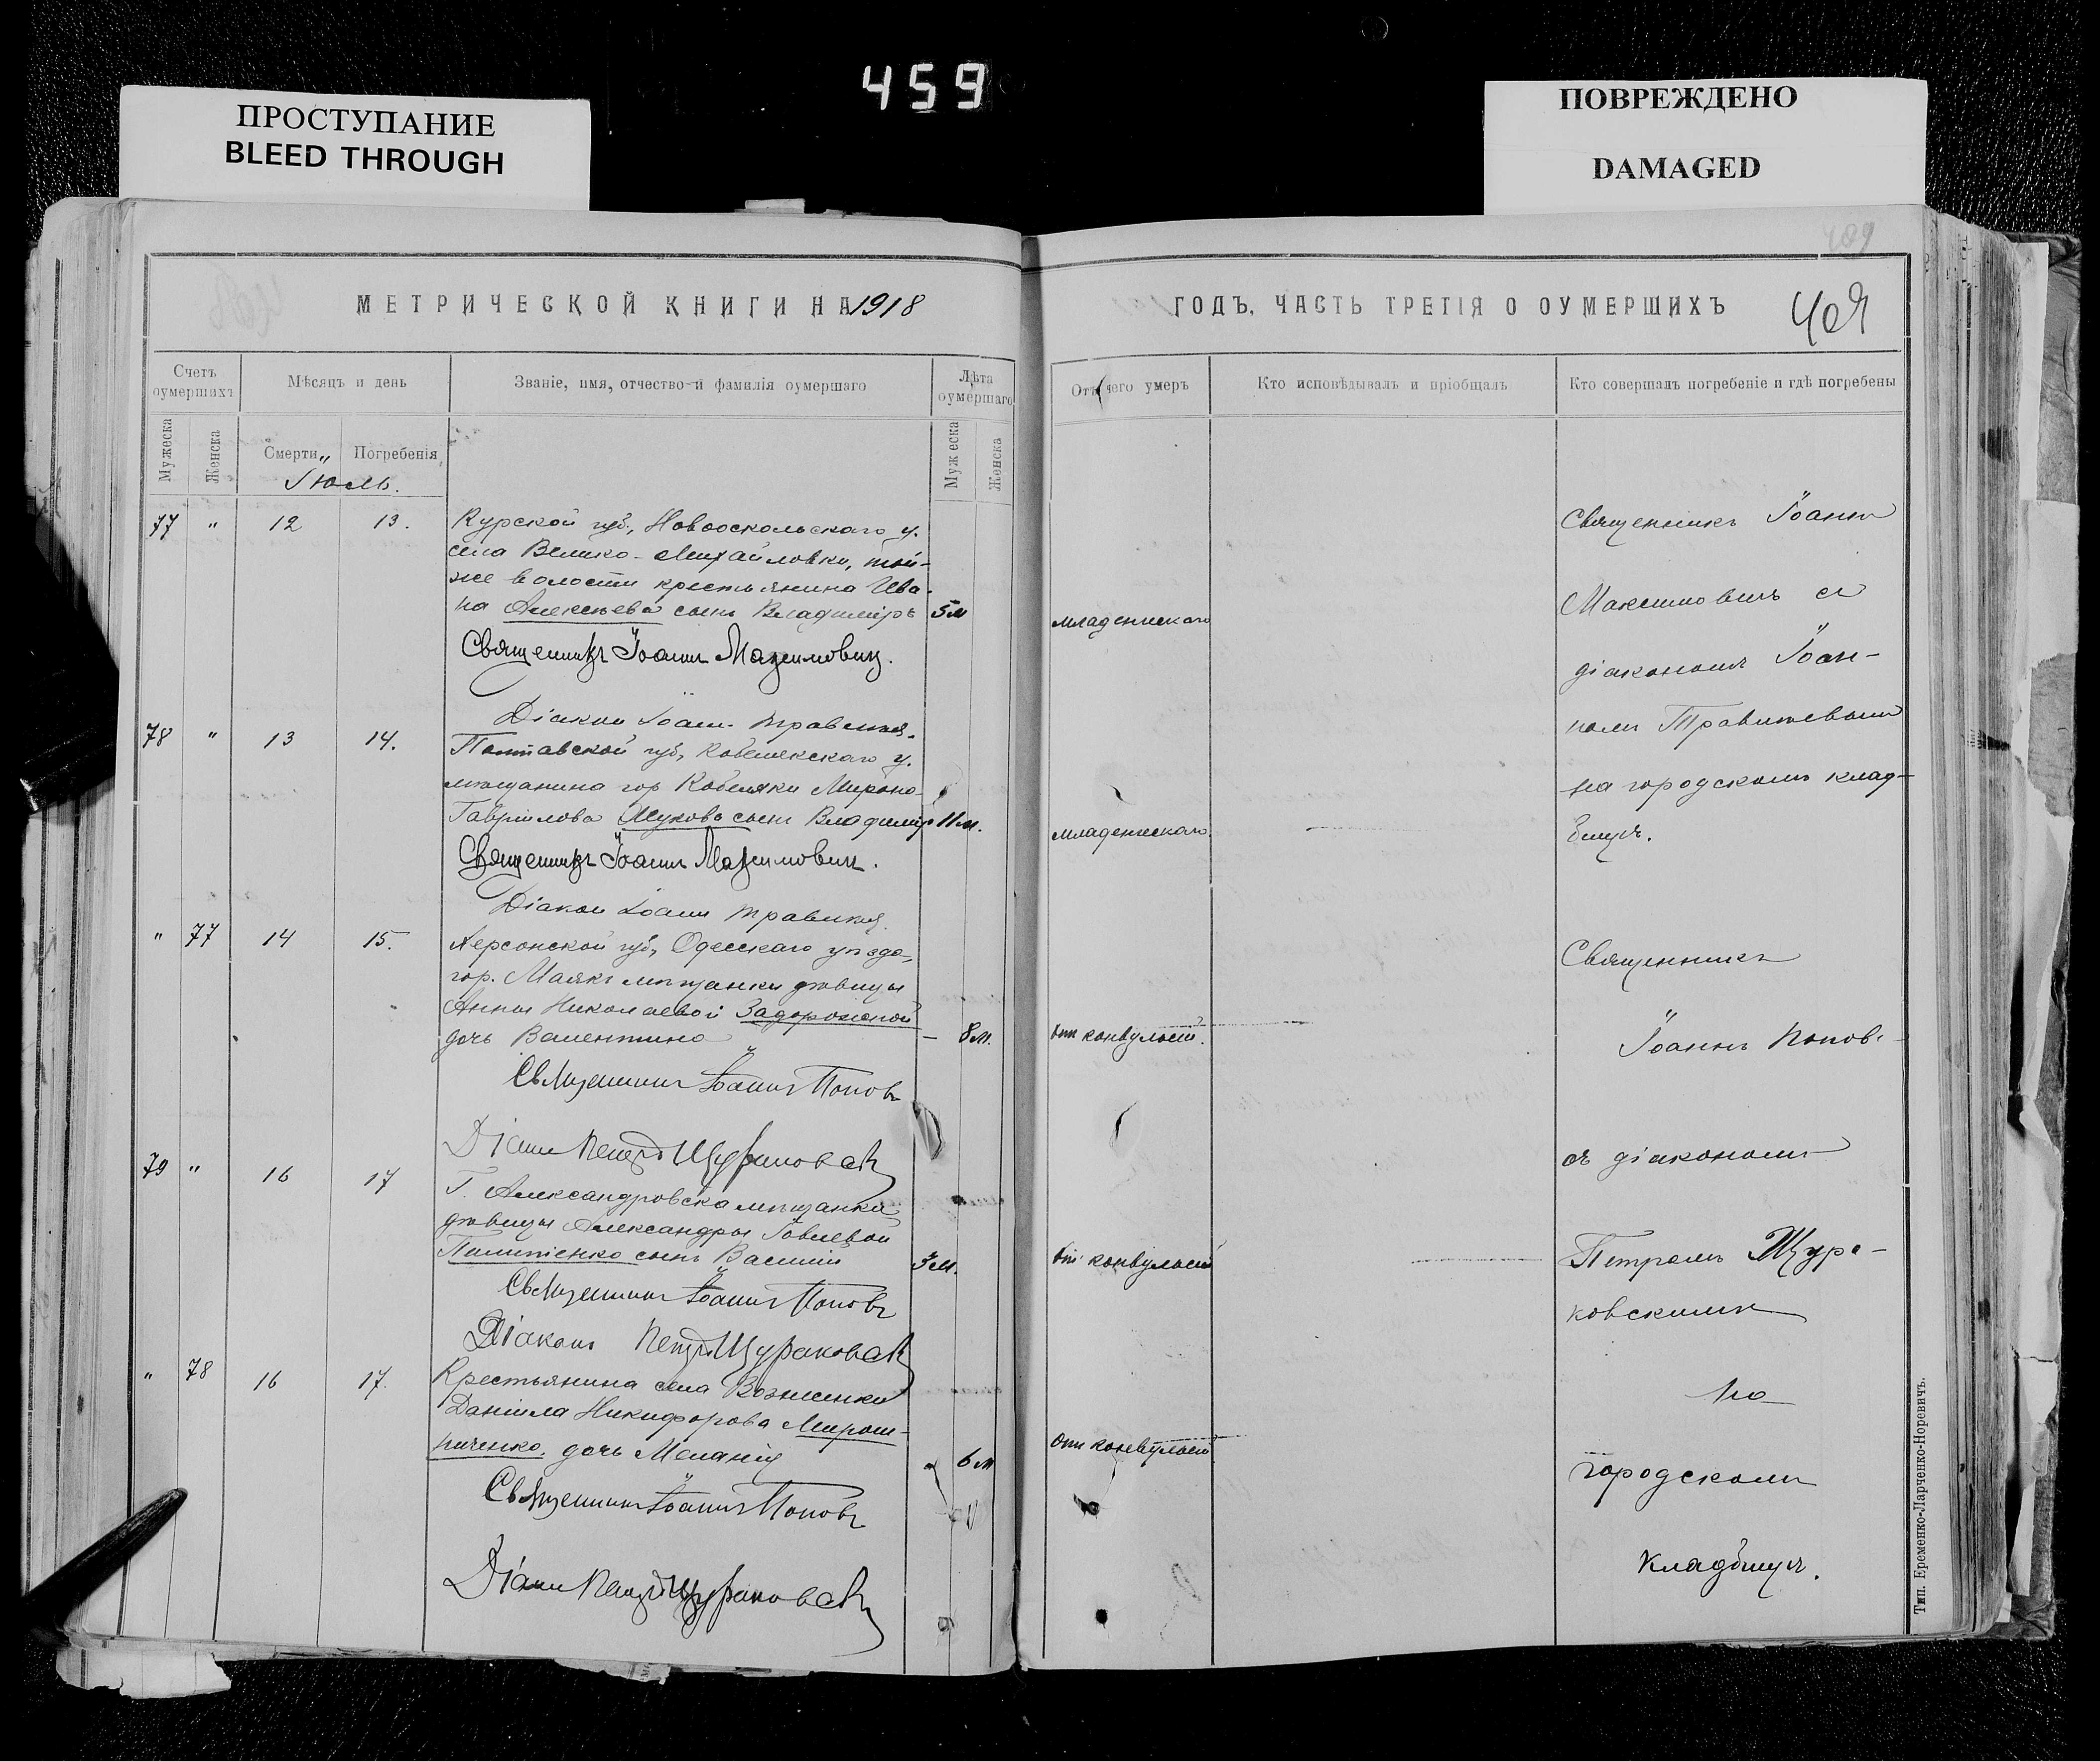 459
ПРОСТУПАНИЕ
BLEED THROUGH
ПОВРЕЖДЕНО
DAMAGED
МЕТРИЧЕСКОЙ КНИГИ НА 1918
Счетъ оумершихъ
Мѣсяцъ и день
Званіе, имя, отчество и фамилія оумершаго
Лѣта оумершаго
Мужеска
Женска
Смерти
Погребенія
Мужеска
Женска
Іюль.
77 " 12 13.
Курской губ., Новооскольскаго у.
села Велико-Михайловки, той-
же волости крестьянина Ива-
на Алексѣева сынъ Владиміръ 5м
Священникъ Іоаннъ Максимовичъ.
Діаконъ Іоаннъ
78 " 13 14.
Полтавской губ., Кобелякскаго у.
мѣщанина гор. Кобеляки Мирона
Гавріилова Жукова сынъ Владиміръ 11м.
Священникъ Іоаннъ Максимовичъ.
Діаконъ Іоаннъ
" 77 14 15.
Херсонской губ., Одесскаго уѣзда,
гор. Маякъ мѣщанки дѣвицы
Анны Николаевой Задорожной
дочь Валентина — 8м.
Священникъ Іоаннъ Поповъ
Діаконъ Петръ Щураковскій
79 " 16 17
Г. Александровска мѣщанки
дѣвицы Александры Іовлевой
сынъ Василій 3м.
Священникъ Іоаннъ Поповъ
Діаконъ Петръ Щураковскій
" 78 16 17.
Крестьянина села Вознесенки
Даніила Никифорова Мирош-
ниченко дочь Меланія 6м
Священникъ Іоаннъ Поповъ
Діаконъ Петръ Щураковскій
409
ГОДЪ, ЧАСТЬ ТРЕТІЯ О ОУМЕРШИХЪ
409
Отъ чего умеръ
Кто исповѣдывалъ и пріобщалъ
Кто совершалъ погребеніе и гдѣ погребены
младенческаго
младенческаго
отъ конвульсій.
отъ конвульсій
отъ конвульсій
Священникъ Іоаннъ
Максимовичъ съ
діакономъ Іоан-
номъ
на городскомъ клад-
бищѣ.
Священникъ
Іоаннъ Поповъ
съ діакономъ
Петромъ Щура-
ковскимъ
на
городскомъ
кладбищѣ.
Тип. Еременко-Ларченко-Норевичъ.